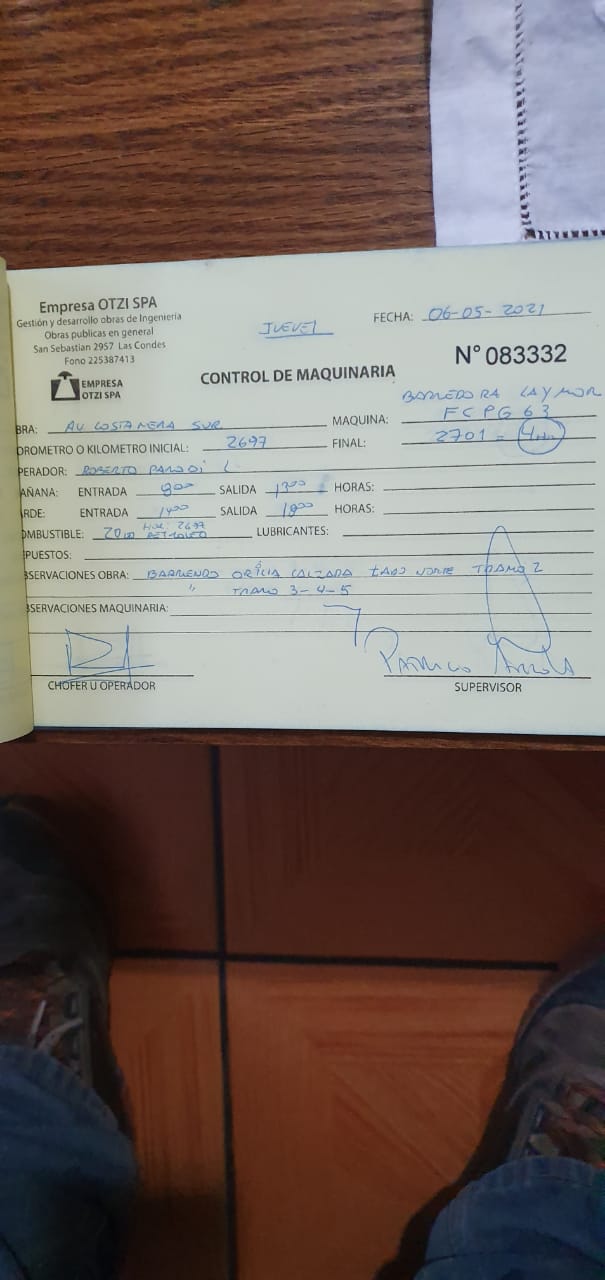 Empresa OTZI SPA
Gestión y desarrollo obras de Ingenieria
Obras publicas en general
San Sebastian 2957 Las Condes
Fono 225387413
EMPRESA
OTZI SPA
JUEVES
FECHA: 06-05-2021
N° 083332
CONTROL DE MAQUINARIA
BARREDORA LAYMOR
BRA: AV COSTANERA SUR MAQUINA: FCPG 63
DROMETRO O KILOMETRO INICIAL: 2697 FINAL: 2701 = 4
PERADOR: ROBERTO L
AÑANA: ENTRADA 900 SALIDA 1300 HORAS:
ARDE: ENTRADA 1400 SALIDA 1800 HORAS:
OMBUSTIBLE: 20 HOR: 2697 PETROLEO LUBRICANTES:
PUESTOS:
BSERVACIONES OBRA: BARRIENDO CALZADA LADO NORTE TRAMO 2
" TRAMO 3-4-5
BSERVACIONES MAQUINARIA:
PATRICIO
CHOFER U OPERADOR SUPERVISOR